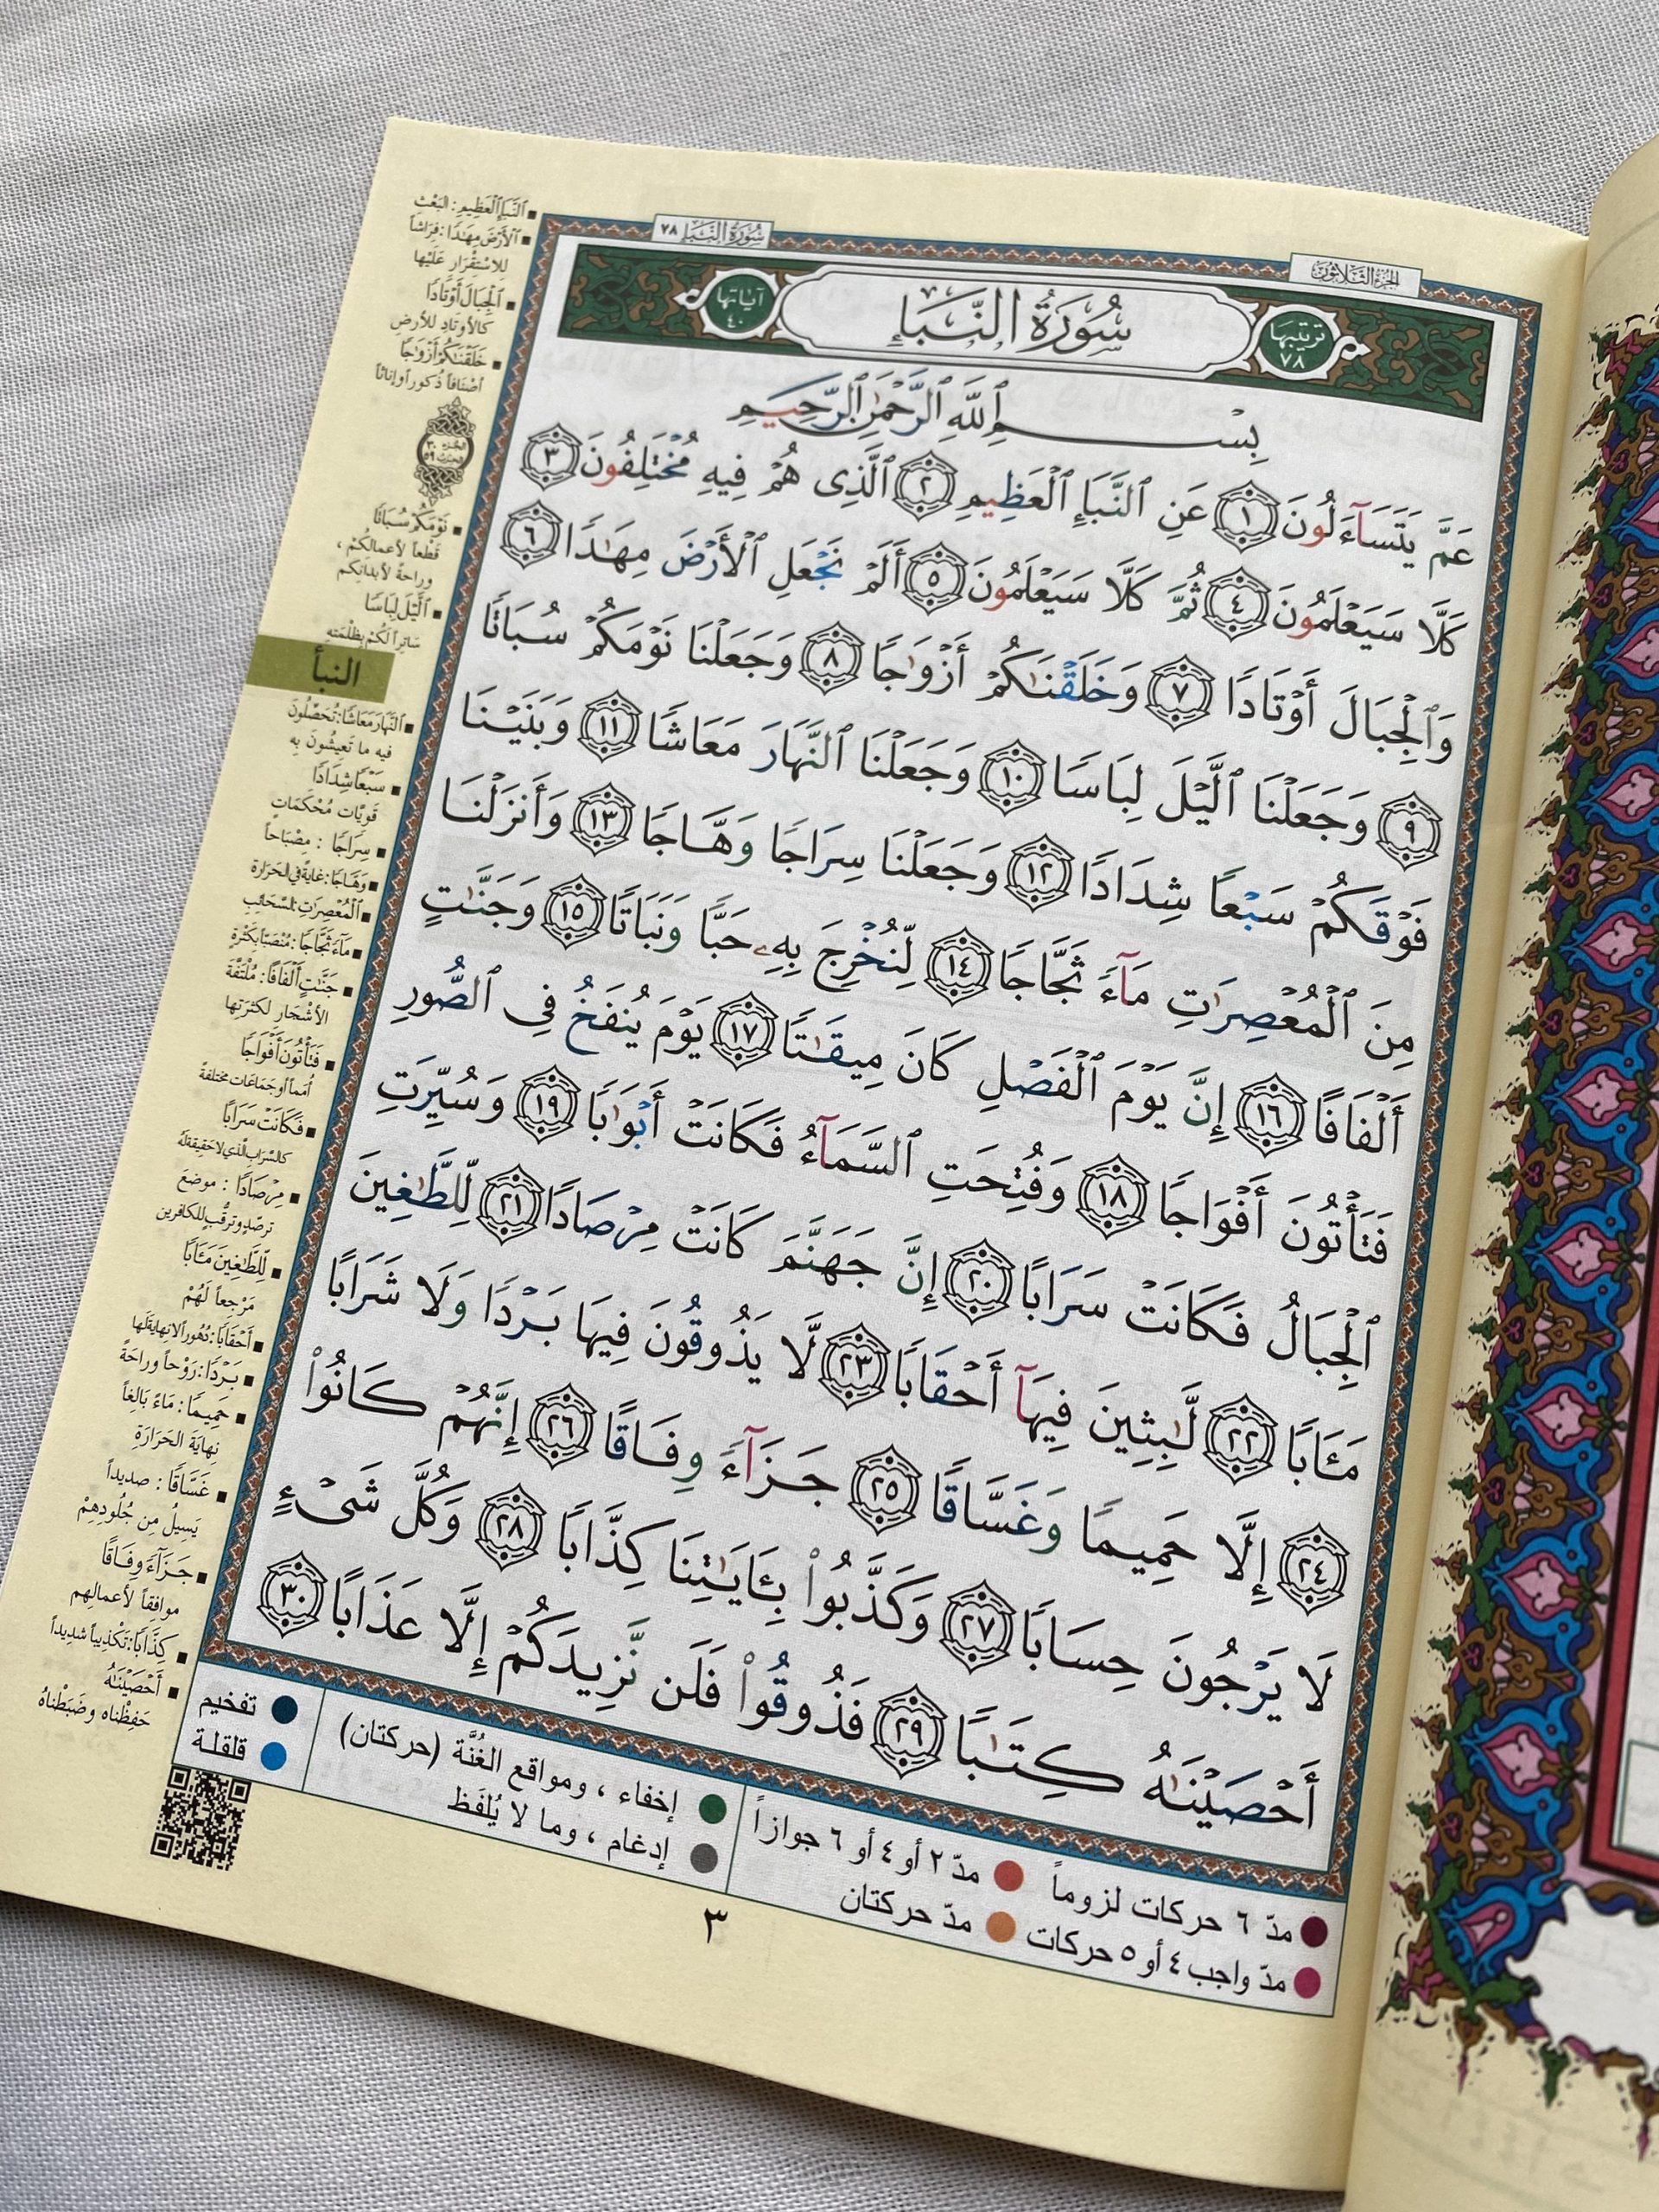 الجزء الثلاثون
سورة النبإ ٧٨
ترتيبها ٧٨
سُورَةُ النَّبَإِ
آياتها ٤٠
بِسْمِ ٱللَّهِ ٱلرَّحْمَٰنِ ٱلرَّحِيمِ
عَمَّ يَتَسَآءَلُونَ ١ عَنِ ٱلنَّبَإِ ٱلْعَظِيمِ ٢ ٱلَّذِى هُمْ فِيهِ مُخْتَلِفُونَ ٣
كَلَّا سَيَعْلَمُونَ ٤ ثُمَّ كَلَّا سَيَعْلَمُونَ ٥ أَلَمْ نَجْعَلِ ٱلْأَرْضَ مِهَٰدًا ٦
وَٱلْجِبَالَ أَوْتَادًا ٧ وَخَلَقْنَٰكُمْ أَزْوَٰجًا ٨ وَجَعَلْنَا نَوْمَكُمْ سُبَاتًا
٩ وَجَعَلْنَا ٱلَّيْلَ لِبَاسًا ١٠ وَجَعَلْنَا ٱلنَّهَارَ مَعَاشًا ١١ وَبَنَيْنَا
فَوْقَكُمْ سَبْعًا شِدَادًا ١٢ وَجَعَلْنَا سِرَاجًا وَهَّاجًا ١٣ وَأَنزَلْنَا
مِنَ ٱلْمُعْصِرَٰتِ مَآءً ثَجَّاجًا ١٤ لِّنُخْرِجَ بِهِۦ حَبًّا وَنَبَاتًا ١٥ وَجَنَّٰتٍ
أَلْفَافًا ١٦ إِنَّ يَوْمَ ٱلْفَصْلِ كَانَ مِيقَٰتًا ١٧ يَوْمَ يُنفَخُ فِى ٱلصُّورِ
فَتَأْتُونَ أَفْوَاجًا ١٨ وَفُتِحَتِ ٱلسَّمَآءُ فَكَانَتْ أَبْوَٰبًا ١٩ وَسُيِّرَتِ
ٱلْجِبَالُ فَكَانَتْ سَرَابًا ٢٠ إِنَّ جَهَنَّمَ كَانَتْ مِرْصَادًا ٢١ لِّلطَّٰغِينَ
مَـَٔابًا ٢٢ لَّٰبِثِينَ فِيهَآ أَحْقَابًا ٢٣ لَّا يَذُوقُونَ فِيهَا بَرْدًا وَلَا شَرَابًا
٢٤ إِلَّا حَمِيمًا وَغَسَّاقًا ٢٥ جَزَآءً وِفَاقًا ٢٦ إِنَّهُمْ كَانُوا۟
لَا يَرْجُونَ حِسَابًا ٢٧ وَكَذَّبُوا۟ بِـَٔايَٰتِنَا كِذَّابًا ٢٨ وَكُلَّ شَىْءٍ
أَحْصَيْنَٰهُ كِتَٰبًا ٢٩ فَذُوقُوا۟ فَلَن نَّزِيدَكُمْ إِلَّا عَذَابًا ٣٠
ٱلنَّبَإِ ٱلْعَظِيمِ : البَعْث
ٱلْأَرْضَ مِهَٰدًا : فِرَاشاً
للاسْتِقْرَارِ عَلَيْها
ٱلْجِبَالَ أَوْتَادًا
كالأوتادِ للأرضِ
خَلَقْنَٰكُمْ أَزْوَٰجًا
أصْنَافاً ذُكوراً وإناثاً
الجزء ٣٠
الحزب ٥٩
نَوْمَكُمْ سُبَاتًا
قَطْعاً لأعمالِكُمْ ،
وراحةً لأبدانِكم
ٱلَّيْلَ لِبَاسًا
سَاتِراً لكُمْ بِظُلْمَتِهِ
النبأ
ٱلنَّهَارَ مَعَاشًا : تُحَصِّلُونَ
فيه ما تَعِيشُونَ بِهِ
سَبْعًا شِدَادًا
قَوِيّات مُحْكَمَاتٍ
سِرَاجًا : مِصْبَاحاً
وَهَّاجًا : غايةً في الحَرَارة
ٱلْمُعْصِرَٰتِ : السَّحَائِبِ
مَآءً ثَجَّاجًا : مُنْصَبّاً بكَثْرةٍ
جَنَّٰتٍ أَلْفَافًا : مُلْتَفَّةَ
الأشْجَارِ لكثرتِها
فَتَأْتُونَ أَفْوَاجًا
أُمَماً أو جَمَاعَات مختلفةً
فَكَانَتْ سَرَابًا
كالسَّرابِ الَّذِي لا حَقِيقَةَ لَهُ
مِرْصَادًا : موضعَ
ترصُّدٍ وترقُّبٍ للكافرين
لِّلطَّٰغِينَ مَـَٔابًا
مَرْجِعاً لَهُمْ
أَحْقَابًا : دُهُوراً لا نِهايةَ لَها
بَرْدًا : رَوْحاً وراحَةً
حَمِيمًا : مَاءً بَالِغاً
نِهايَةَ الحَرَارَةِ
غَسَّاقًا : صديداً
يَسِيلُ مِن جُلُودِهِمْ
جَزَآءً وِفَاقًا
موافِقاً لأعمالِهم
كِذَّابًا : تَكْذِيباً شديداً
أَحْصَيْنَٰهُ
حَفِظْناه وضَبَطْناهُ
مدّ ٦ حركات لزوماً
مدّ ٢ أو ٤ أو ٦ جوازاً
مدّ واجب ٤ أو ٥ حركات
مدّ حركتان
إخفاء ، ومواقع الغُنَّة (حركتان)
إدغام ، وما لا يُلفَظ
تفخيم
قلقلة
٣